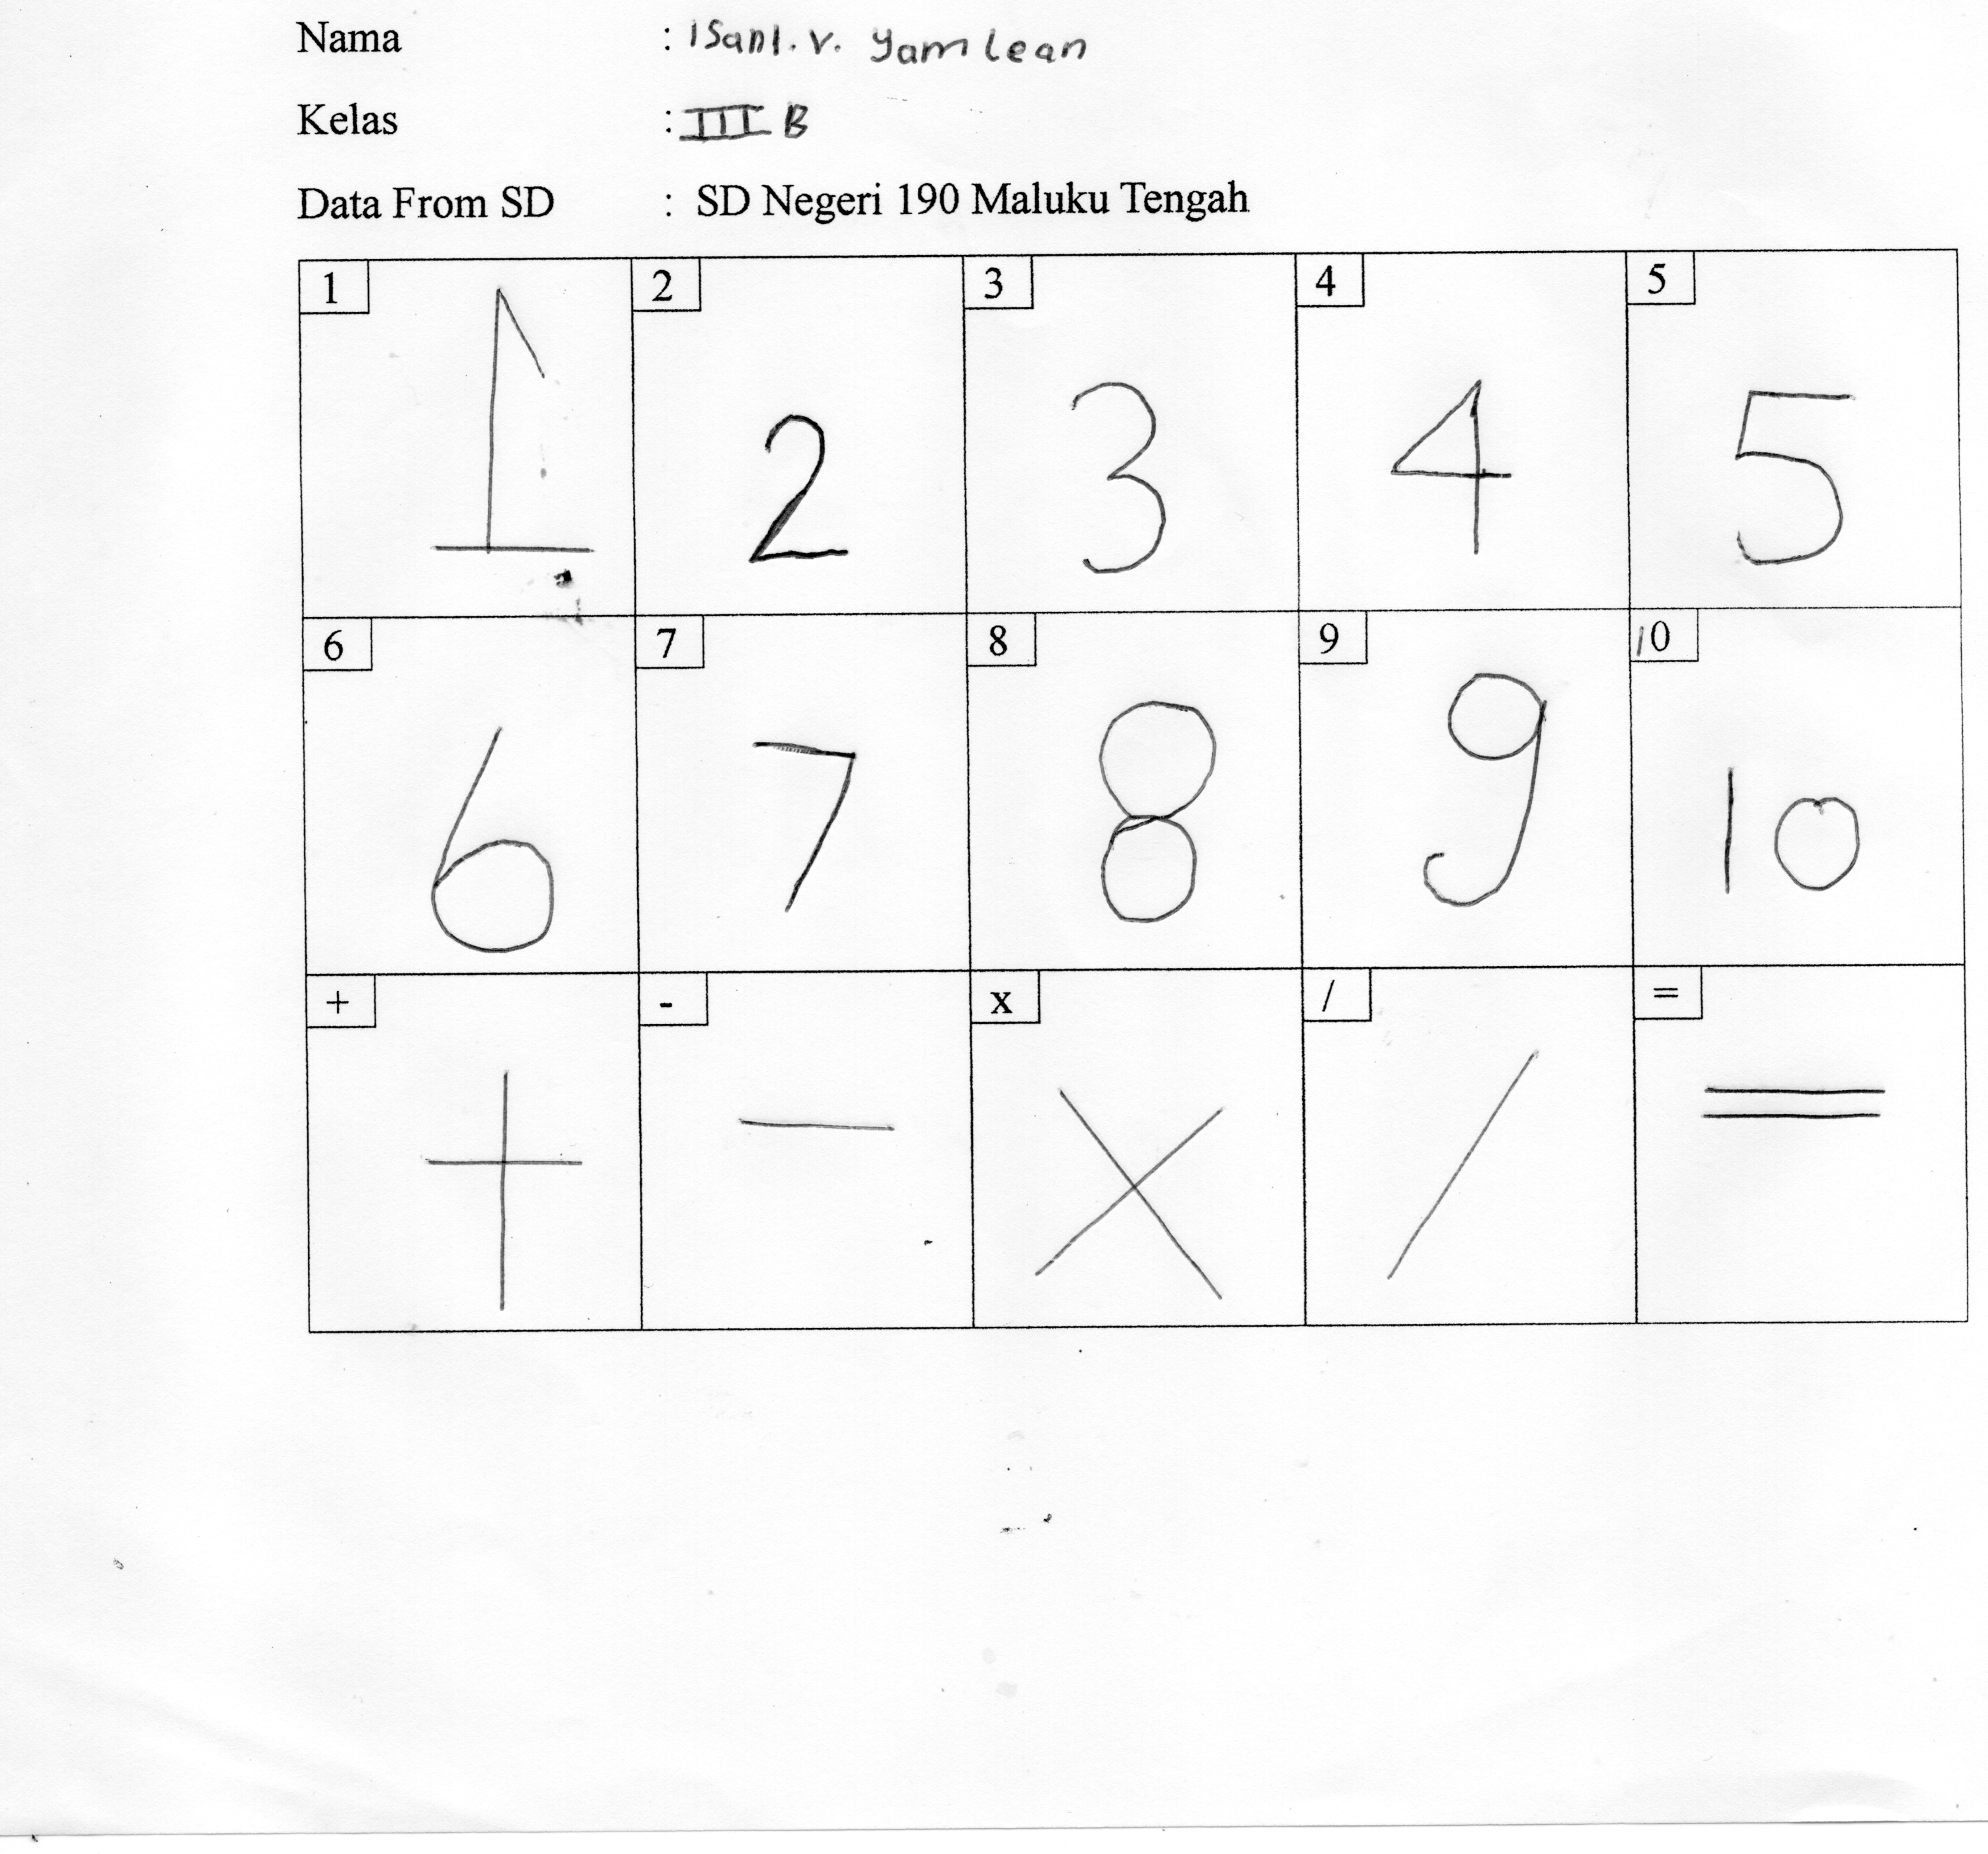 Nama : ISanI. V. Yamlean
Kelas : III B
Data From SD : SD Negeri 190 Maluku Tengah
1 2 3 4 5
1 2 3 4 5
6 7 8 9 10
6 7 8 9 10
+ - x / =
+ - x / =